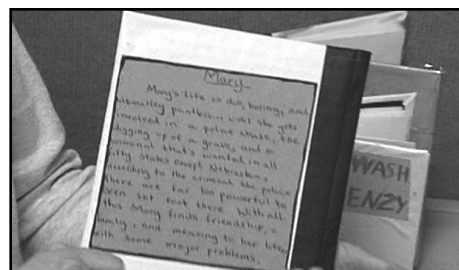 Mary
Mary's life is dull, boring, and
ultimatley pointless... until she gets
involved in a police chase, the
digging up of a grave, and a
criminal that's wanted in all
fifty states except Nebraska
according to the criminal the police
there are far too powerful to
even set foot there. With all
this Mary finds friendship, a
family, and meaning to her life
with some major problems.
WASH
ENZY